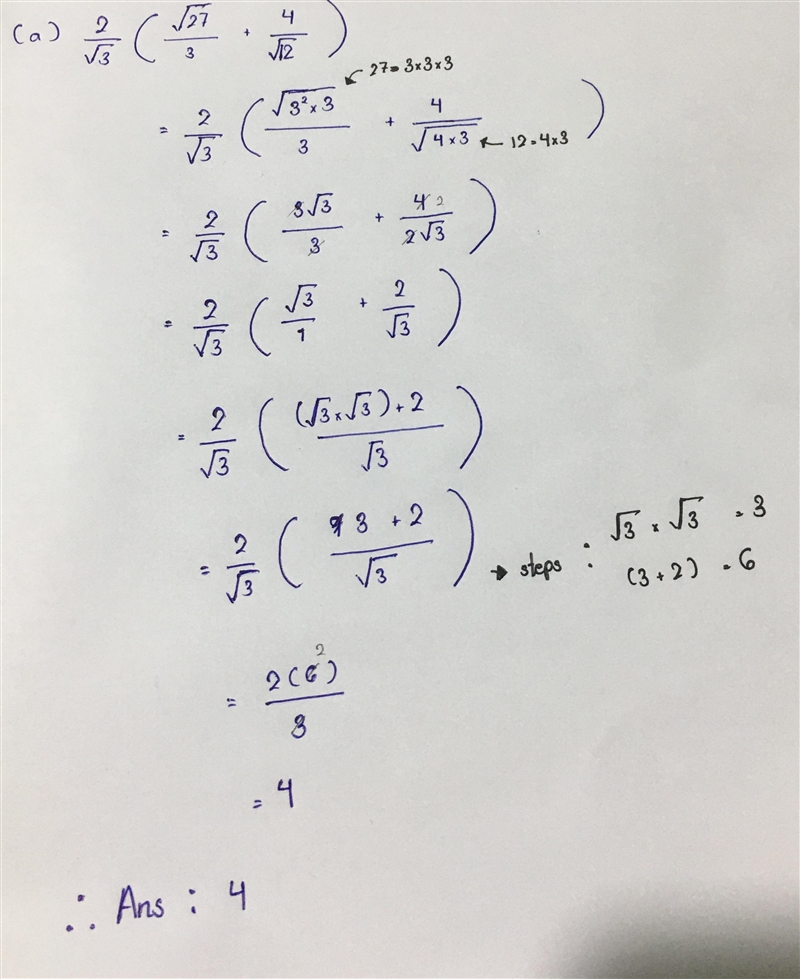 (a) 2/√3 ( √27/3 + 4/√12 )
27 = 3×3×3
= 2/√3 ( √(3²×3)/3 + 4/√(4×3) )
12 = 4×3
= 2/√3 ( 3√3/3 + 4 2/2√3 )
= 2/√3 ( √3/1 + 2/√3 )
= 2/√3 ( (√3×√3)+2/√3 )
= 2/√3 ( 3 + 2/√3 ) → steps : √3 × √3 = 3
(3+2) = 6
= 2(6) 2/3
= 4
∴ Ans : 4